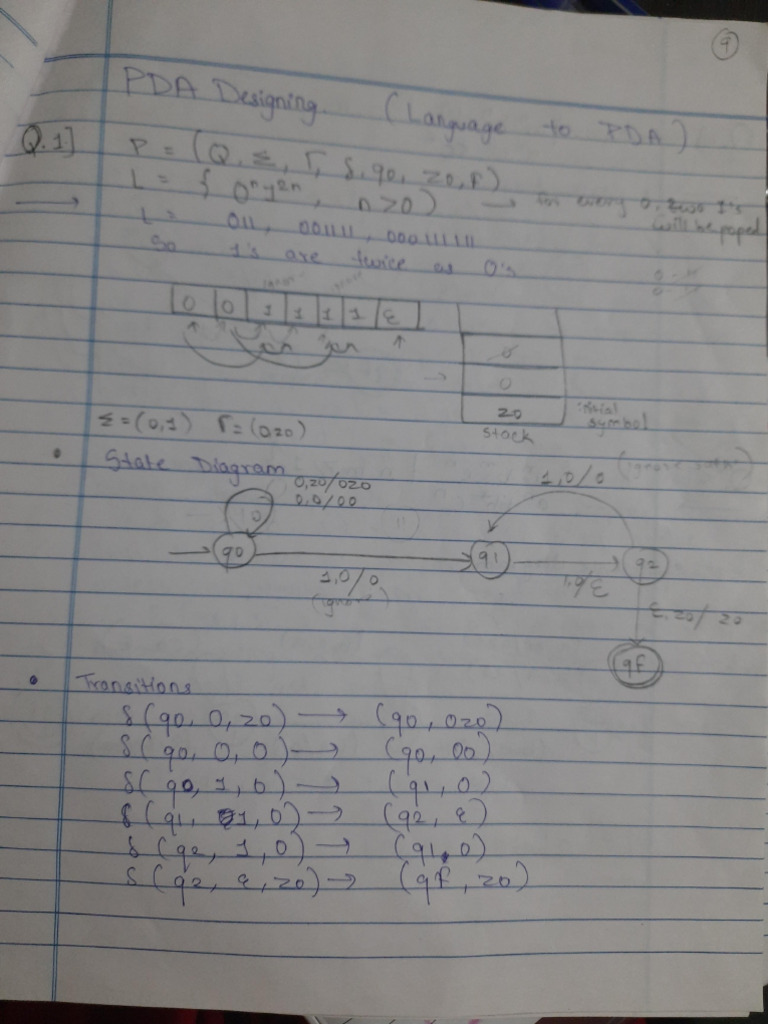 9
PDA Designing. (Language to PDA)
Q.1] P = (Q, Σ, Γ, δ, q0, z0, F)
L = { 0ⁿ1²ⁿ, n>0) → for every 0, two 1's will be poped
L = 011, 001111, 000111111
So 1's are twice as 0's
0 0 1 1 1 1 ε
0
0
z0
initial symbol
stack
Σ = (0,1) Γ = (0z0)
• State Diagram
0,z0/0z0
0,0/00
1,0/0
q0 q1 q2
1,0/0
(ignore)
1,0/ε
ε,z0/z0
qf
• Transitions
δ(q0, 0, z0) → (q0, 0z0)
δ(q0, 0, 0) → (q0, 00)
δ(q0, 1, 0) → (q1, 0)
δ(q1, 1, 0) → (q2, ε)
δ(q2, 1, 0) → (q1, 0)
δ(q2, ε, z0) → (qf, z0)